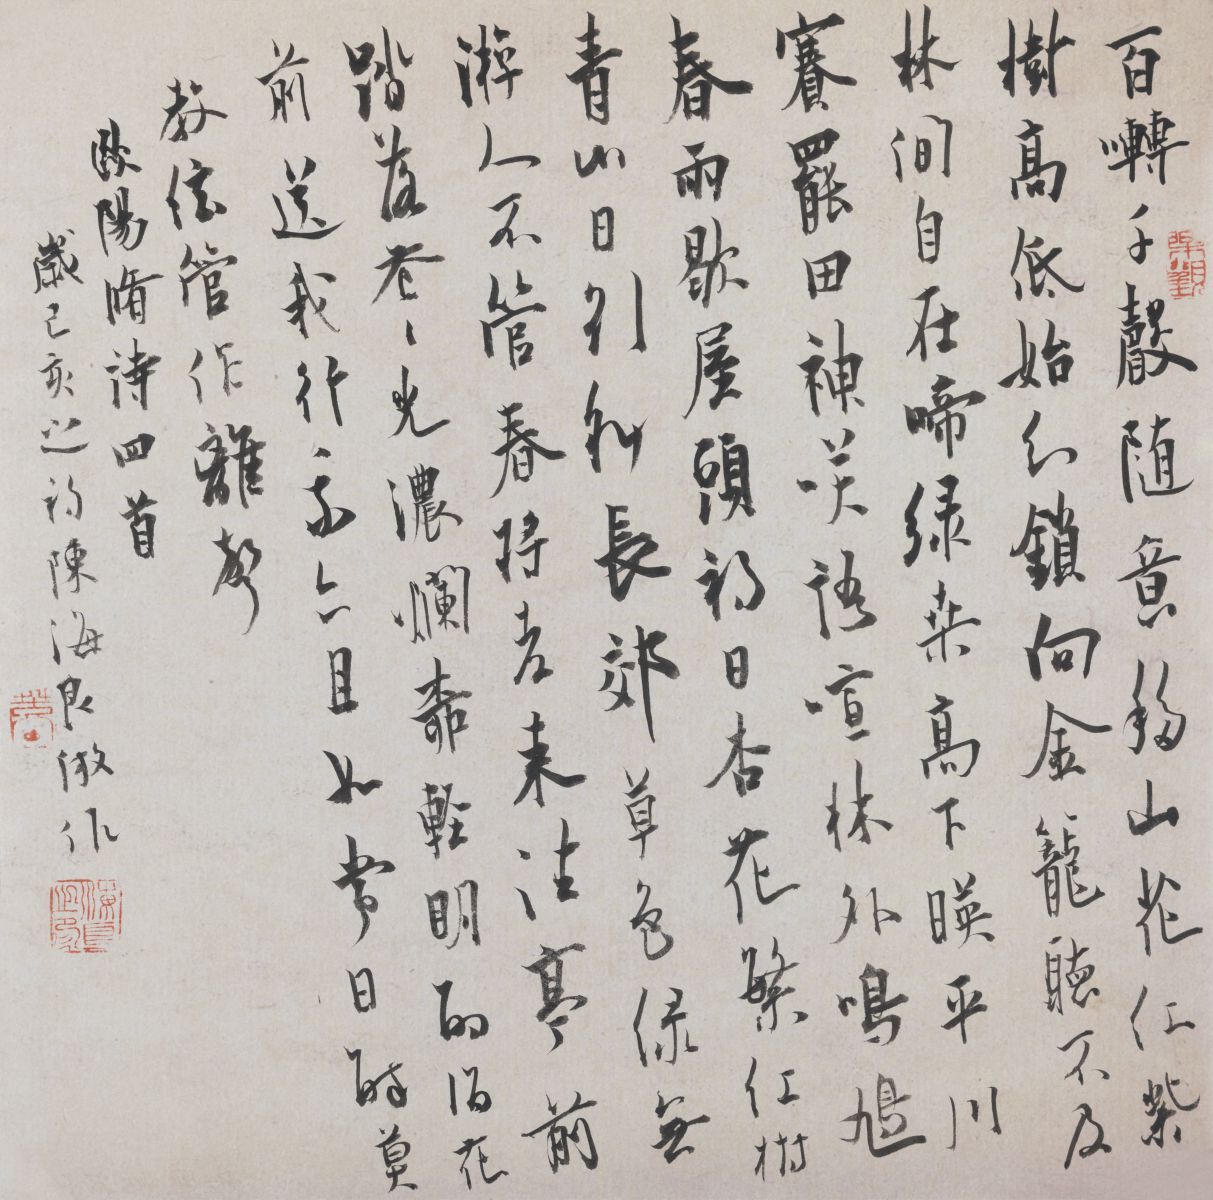 百囀千聲隨意移山花紅紫
樹高低始知鎖向金籠聽不及
林間自在啼綠桑高下暎平川
賽罷田神笑語喧林外鳴鳩
春雨歇屋頭初日杏花繁紅樹
青山日引斜長郊草色綠無
遊人不管春將老來往亭前
踏落花花光濃爛柳輕明酌酒花
前送我行我亦且如常日醉莫
教弦管作離聲
歐陽脩詩四首
歲己亥之初陳海良俶作